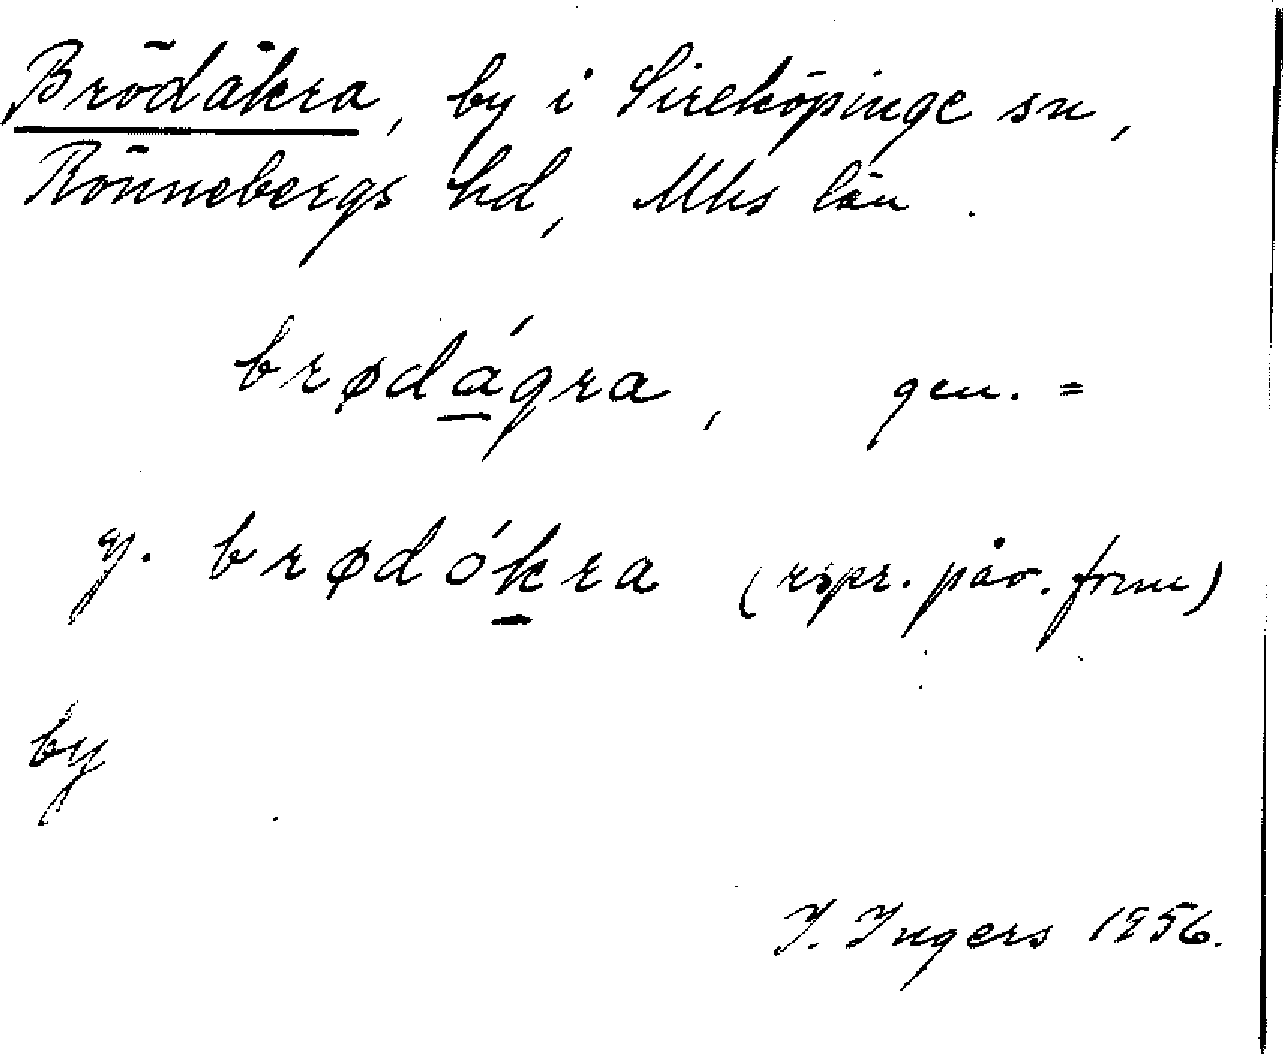 Brödåkra, by i Sireköpinge sn,
Rönnebergs hd, Mhs län.
brødágra, gen. =
y. brødókra (rspr. påv. form)
by
I. Ingers 1956.